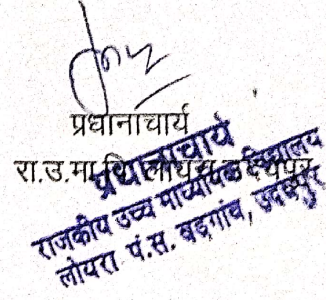 प्रधानाचार्य
रा.उ.मा.वि. लोयरा, उदयपुर
प्रधानाचार्य
राजकीय उच्च माध्यमिक विद्यालय
लोयरा पं.स. बड़गांव, उदयपुर